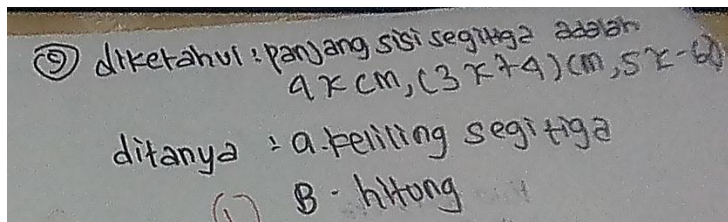 ⑨ diketahui : panjang sisi segitiga adalah
4x cm, (3x+4) cm, 5x-6)
ditanya : a. keliling segitiga
B. hitung